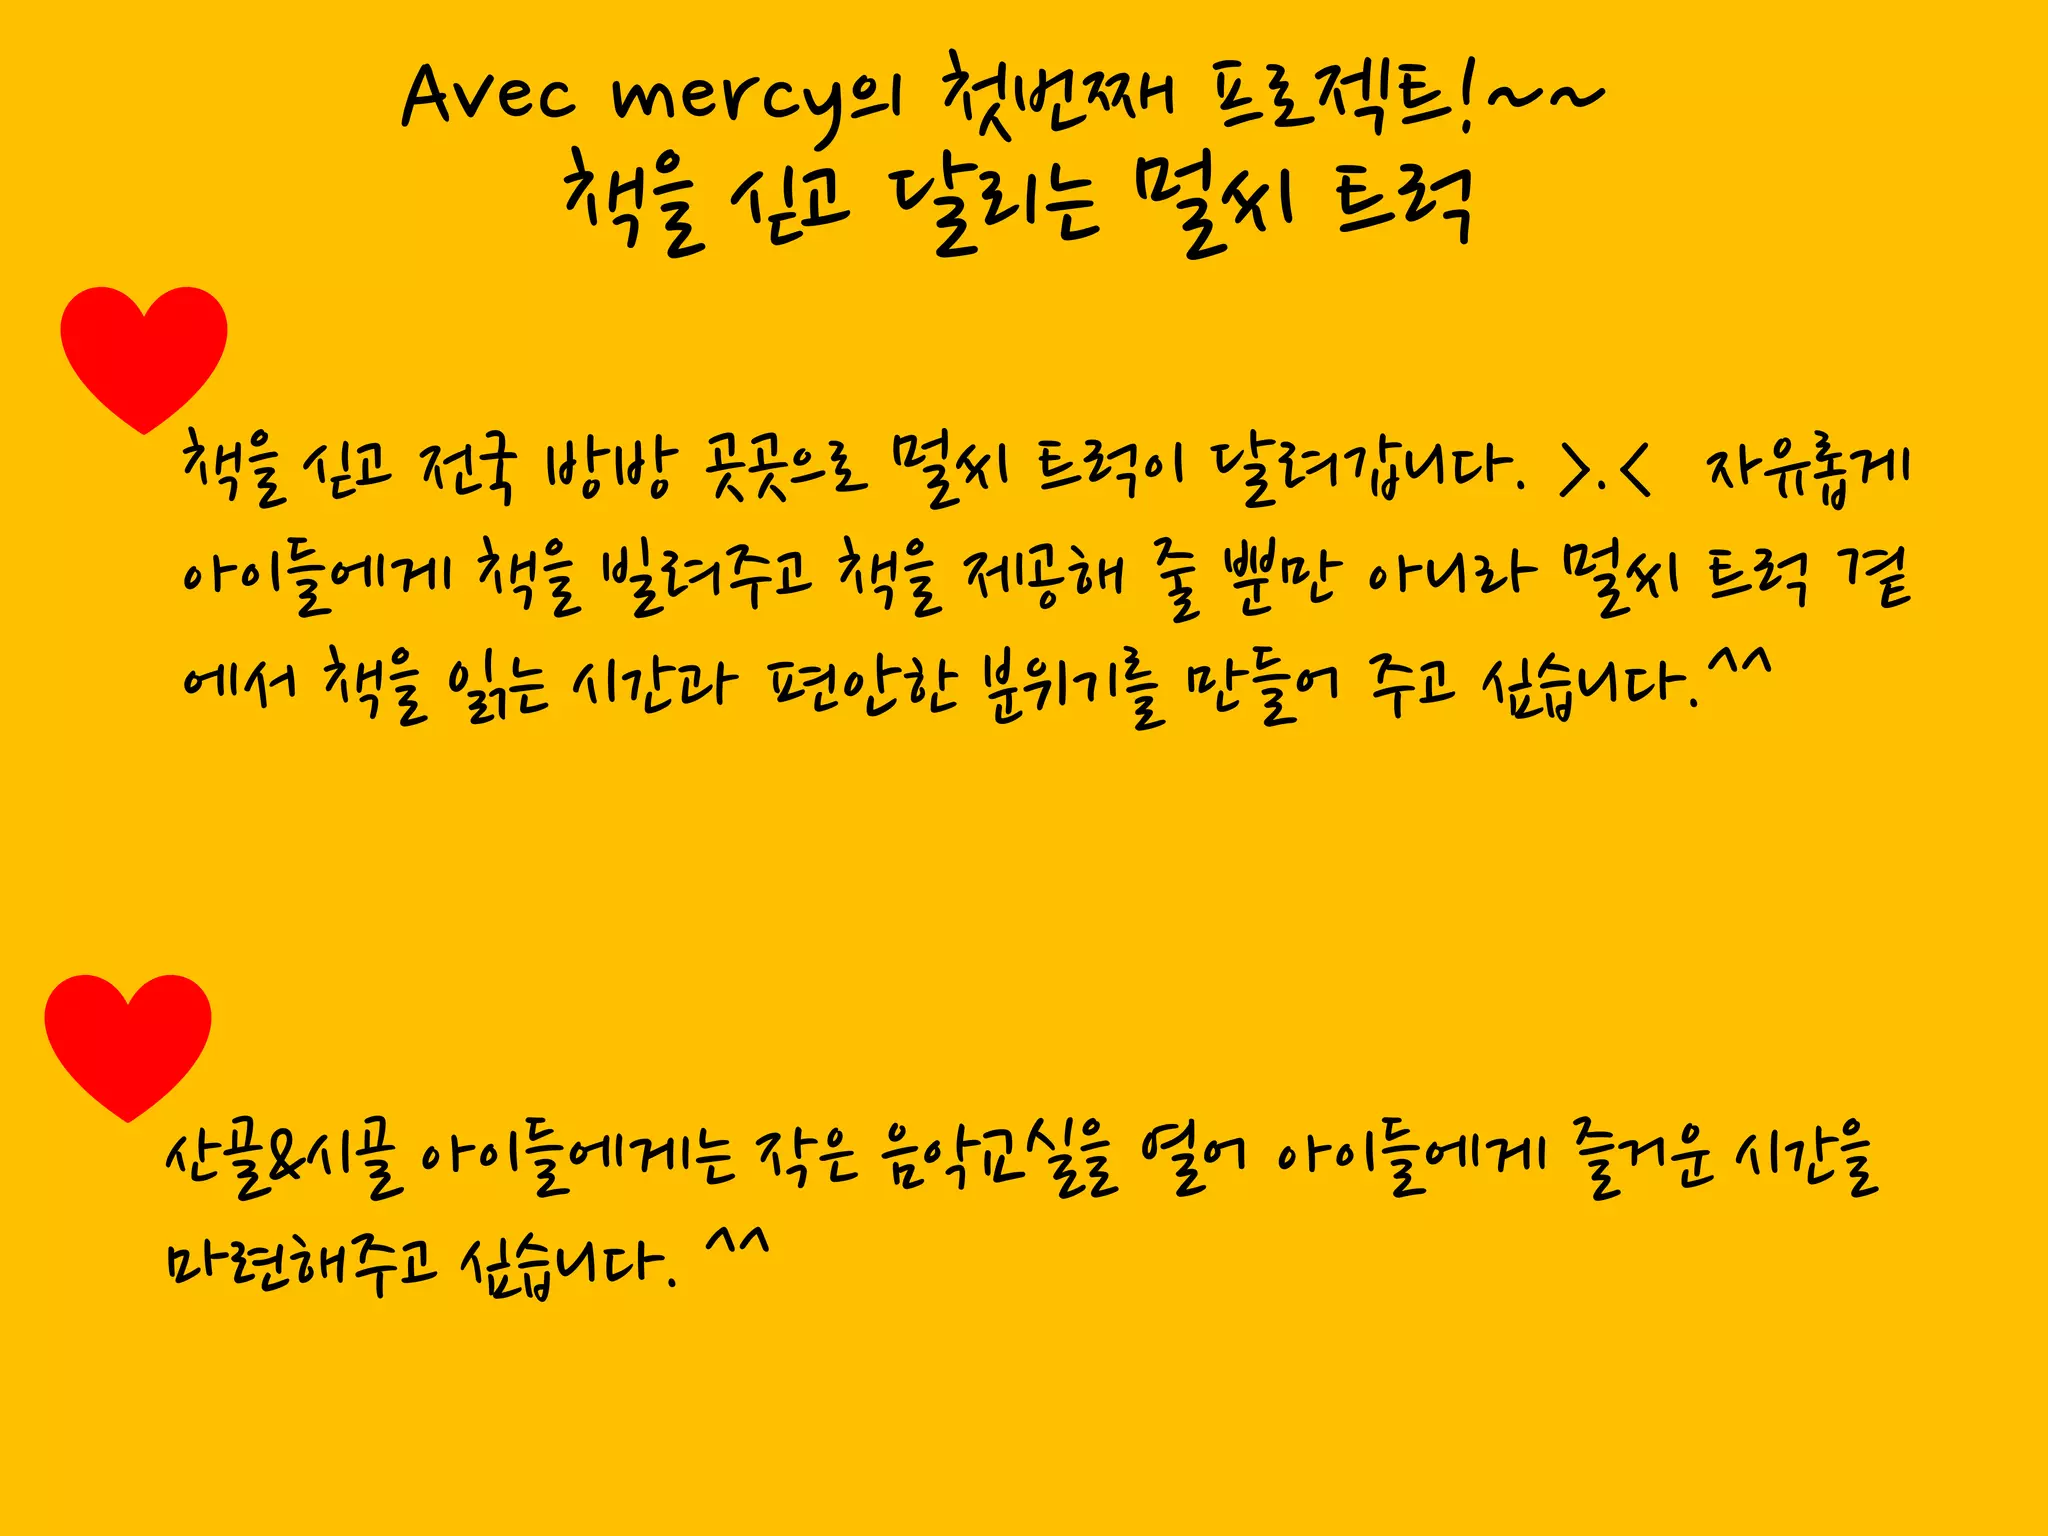 Avec mercy의 첫번째 프로젝트!~~
책을 싣고 달리는 멀씨 트럭
책을 싣고 전국 방방 곳곳으로 멀씨 트럭이 달려갑니다. >.< 자유롭게
아이들에게 책을 빌려주고 책을 제공해 줄 뿐만 아니라 멀씨 트럭 곁
에서 책을 읽는 시간과 편안한 분위기를 만들어 주고 싶습니다.^^
산골&시골 아이들에게는 작은 음악교실을 열어 아이들에게 즐거운 시간을
마련해주고 싶습니다. ^^